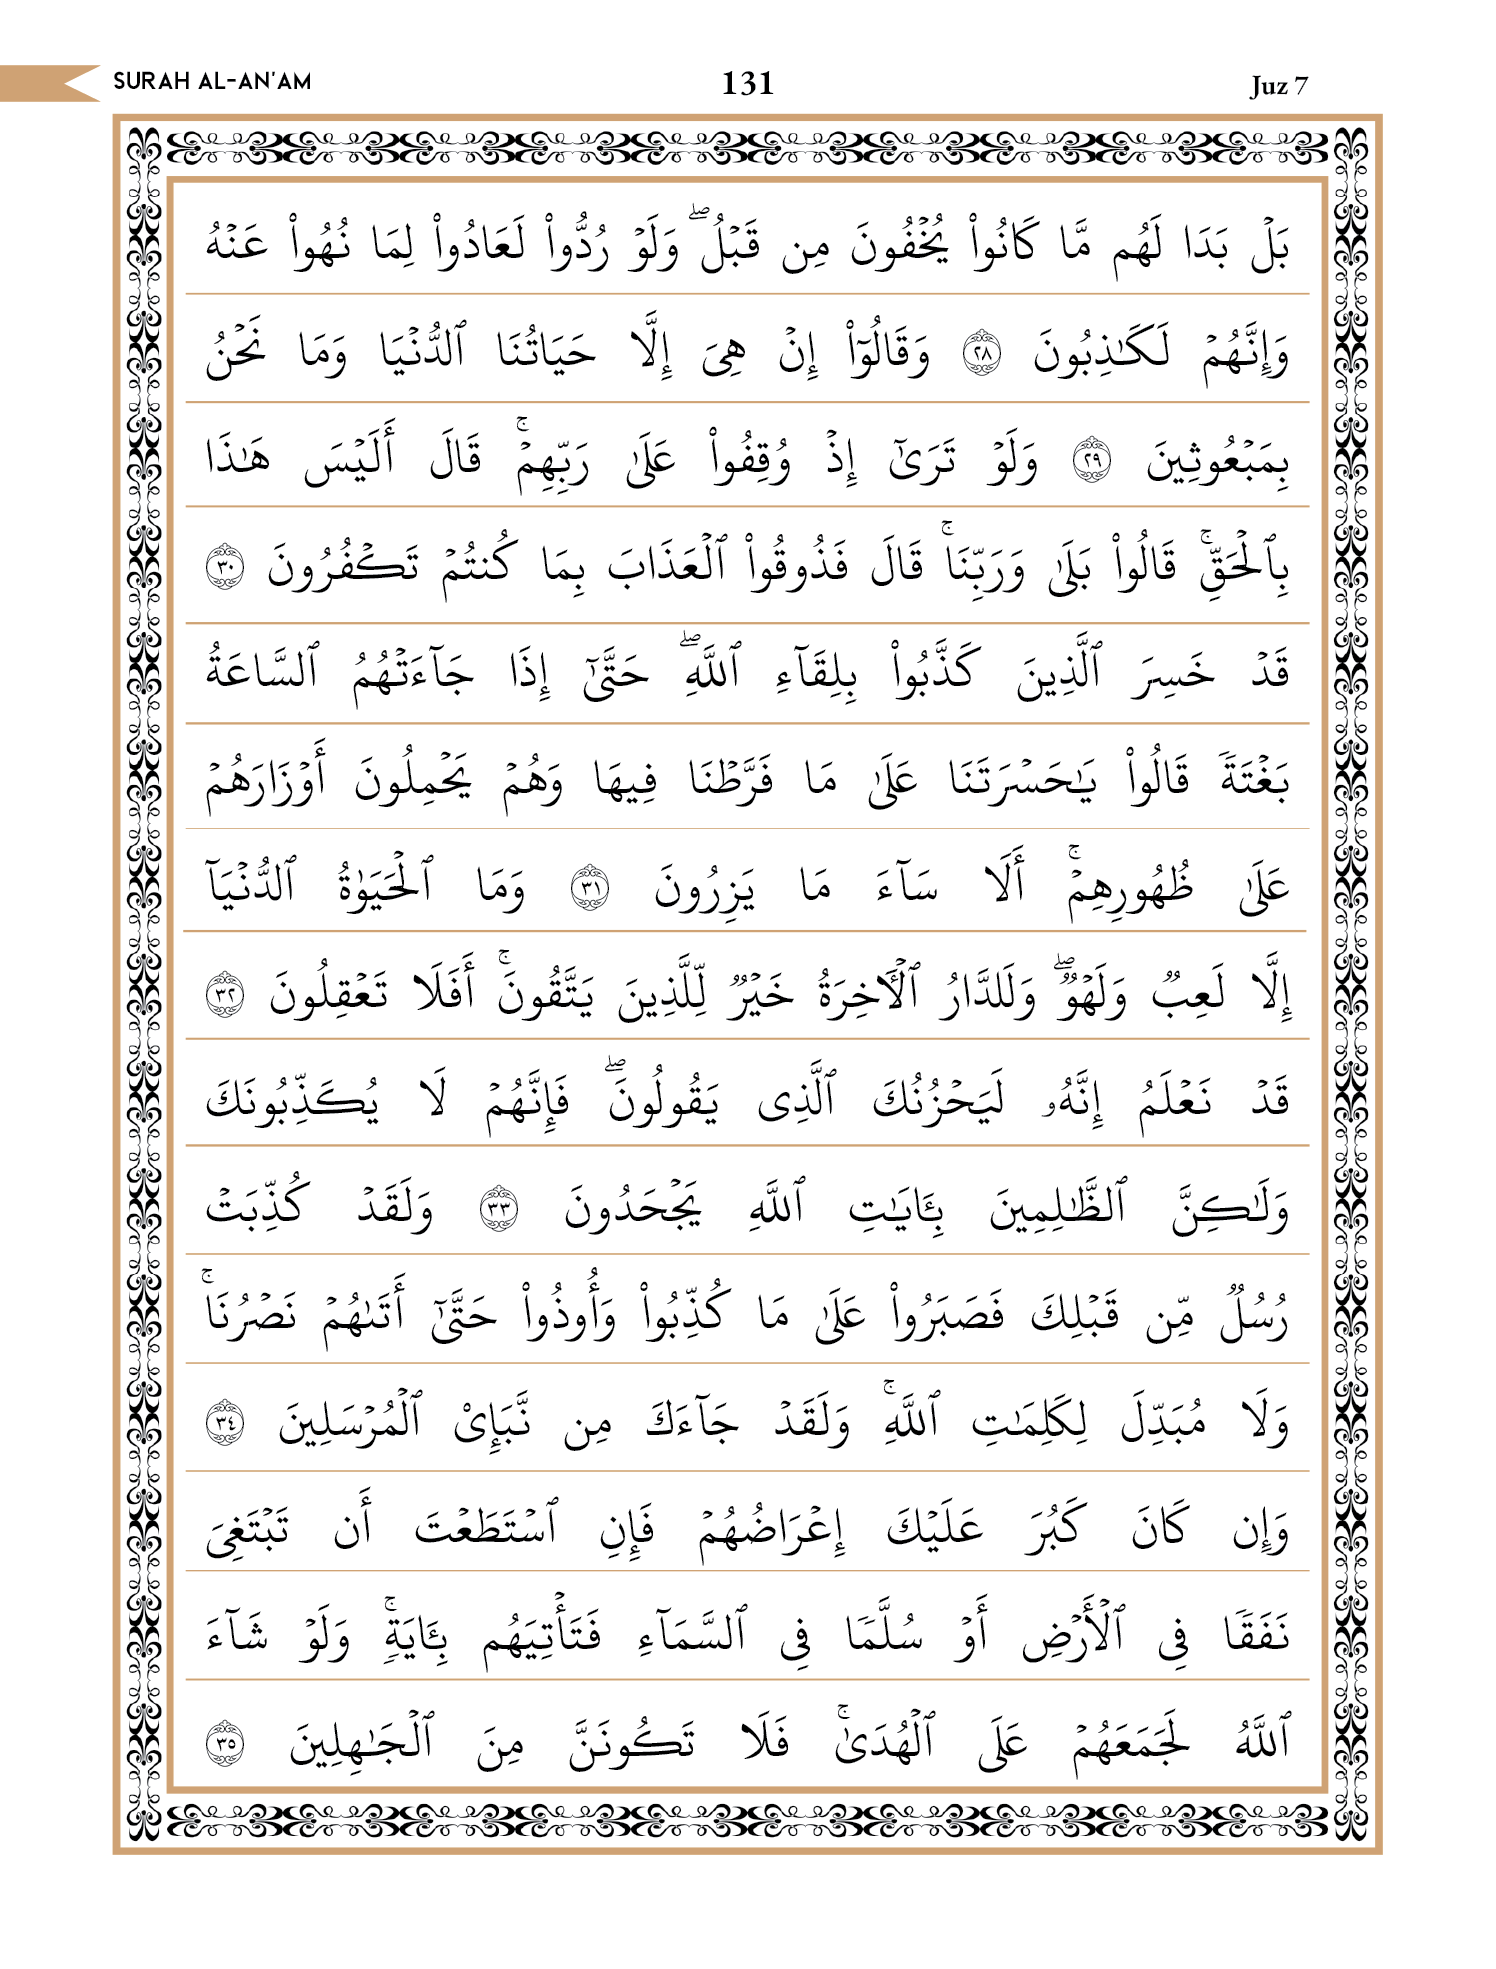 SURAH AL-AN'AM 131 Juz 7
بَلۡ بَدَا لَهُم مَّا كَانُواْ يُخۡفُونَ مِن قَبۡلُۖ وَلَوۡ رُدُّواْ لَعَادُواْ لِمَا نُهُواْ عَنۡهُ
وَإِنَّهُمۡ لَكَٰذِبُونَ ٢٨ وَقَالُوٓاْ إِنۡ هِيَ إِلَّا حَيَاتُنَا ٱلدُّنۡيَا وَمَا نَحۡنُ
بِمَبۡعُوثِينَ ٢٩ وَلَوۡ تَرَىٰٓ إِذۡ وُقِفُواْ عَلَىٰ رَبِّهِمۡۚ قَالَ أَلَيۡسَ هَٰذَا
بِٱلۡحَقِّۚ قَالُواْ بَلَىٰ وَرَبِّنَاۚ قَالَ فَذُوقُواْ ٱلۡعَذَابَ بِمَا كُنتُمۡ تَكۡفُرُونَ ٣٠
قَدۡ خَسِرَ ٱلَّذِينَ كَذَّبُواْ بِلِقَآءِ ٱللَّهِۖ حَتَّىٰٓ إِذَا جَآءَتۡهُمُ ٱلسَّاعَةُ
بَغۡتَةٗ قَالُواْ يَٰحَسۡرَتَنَا عَلَىٰ مَا فَرَّطۡنَا فِيهَا وَهُمۡ يَحۡمِلُونَ أَوۡزَارَهُمۡ
عَلَىٰ ظُهُورِهِمۡۚ أَلَا سَآءَ مَا يَزِرُونَ ٣١ وَمَا ٱلۡحَيَوٰةُ ٱلدُّنۡيَآ
إِلَّا لَعِبٞ وَلَهۡوٞۖ وَلَلدَّارُ ٱلۡأٓخِرَةُ خَيۡرٞ لِّلَّذِينَ يَتَّقُونَۚ أَفَلَا تَعۡقِلُونَ ٣٢
قَدۡ نَعۡلَمُ إِنَّهُۥ لَيَحۡزُنُكَ ٱلَّذِي يَقُولُونَۖ فَإِنَّهُمۡ لَا يُكَذِّبُونَكَ
وَلَٰكِنَّ ٱلظَّٰلِمِينَ بِـَٔايَٰتِ ٱللَّهِ يَجۡحَدُونَ ٣٣ وَلَقَدۡ كُذِّبَتۡ
رُسُلٞ مِّن قَبۡلِكَ فَصَبَرُواْ عَلَىٰ مَا كُذِّبُواْ وَأُوذُواْ حَتَّىٰٓ أَتَىٰهُمۡ نَصۡرُنَاۚ
وَلَا مُبَدِّلَ لِكَلِمَٰتِ ٱللَّهِۚ وَلَقَدۡ جَآءَكَ مِن نَّبَإِيْ ٱلۡمُرۡسَلِينَ ٣٤
وَإِن كَانَ كَبُرَ عَلَيۡكَ إِعۡرَاضُهُمۡ فَإِنِ ٱسۡتَطَعۡتَ أَن تَبۡتَغِيَ
نَفَقٗا فِي ٱلۡأَرۡضِ أَوۡ سُلَّمٗا فِي ٱلسَّمَآءِ فَتَأۡتِيَهُم بِـَٔايَةٖۚ وَلَوۡ شَآءَ
ٱللَّهُ لَجَمَعَهُمۡ عَلَى ٱلۡهُدَىٰۚ فَلَا تَكُونَنَّ مِنَ ٱلۡجَٰهِلِينَ ٣٥